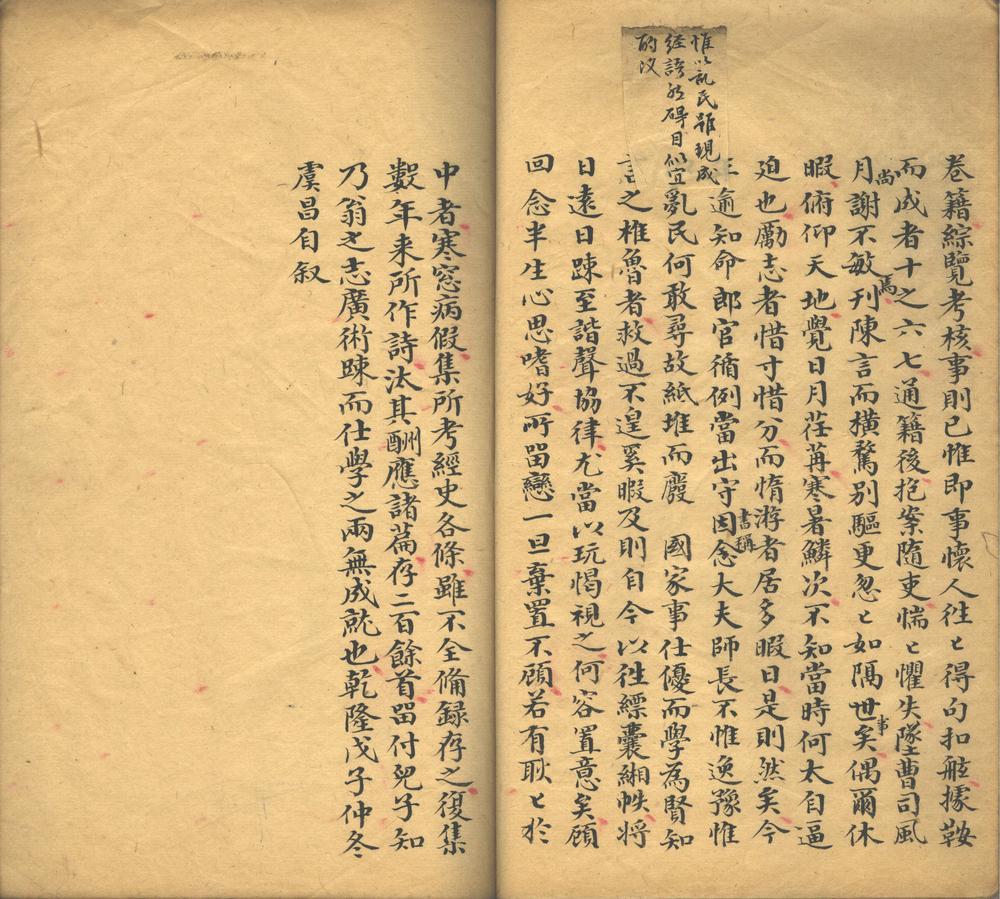 惟以亂民雖現成
經語然碍目似宜
酌改
卷籍綜覽考核事則已惟即事懷人往〻得句扣舷據鞍
而成者十之六七通籍後抱案隨吏惴〻懼失墜曹司風
尚
月謝不敏刊陳言而橫騖別驅更忽〻如隔世矣偶爾休
焉
事
暇俯仰天地覺日月荏苒寒暑鱗次不知當時何太自逼
迫也勵志者惜寸惜分而惰游者居多暇日是則然矣今
年逾知命郎官循例當出守因念大夫師長不惟逸豫惟
書稱
亂民何敢尋故紙堆而廢 國家事仕優而學為賢知
言之椎魯者救過不遑奚暇及則自今以往縹囊緗帙將
日遠日踈至諧聲協律尤當以玩愒視之何容置意矣顧
回念半生心思嗜好所留戀一旦棄置不顧若有耿〻於
中者寒窓病假集所考經史各條雖不全備録存之復集
數年来所作詩汰其酬應諸篇存二百餘首留付兒子知
乃翁之志廣術踈而仕學之兩無成就也乾隆戊子仲冬
虞昌自叙